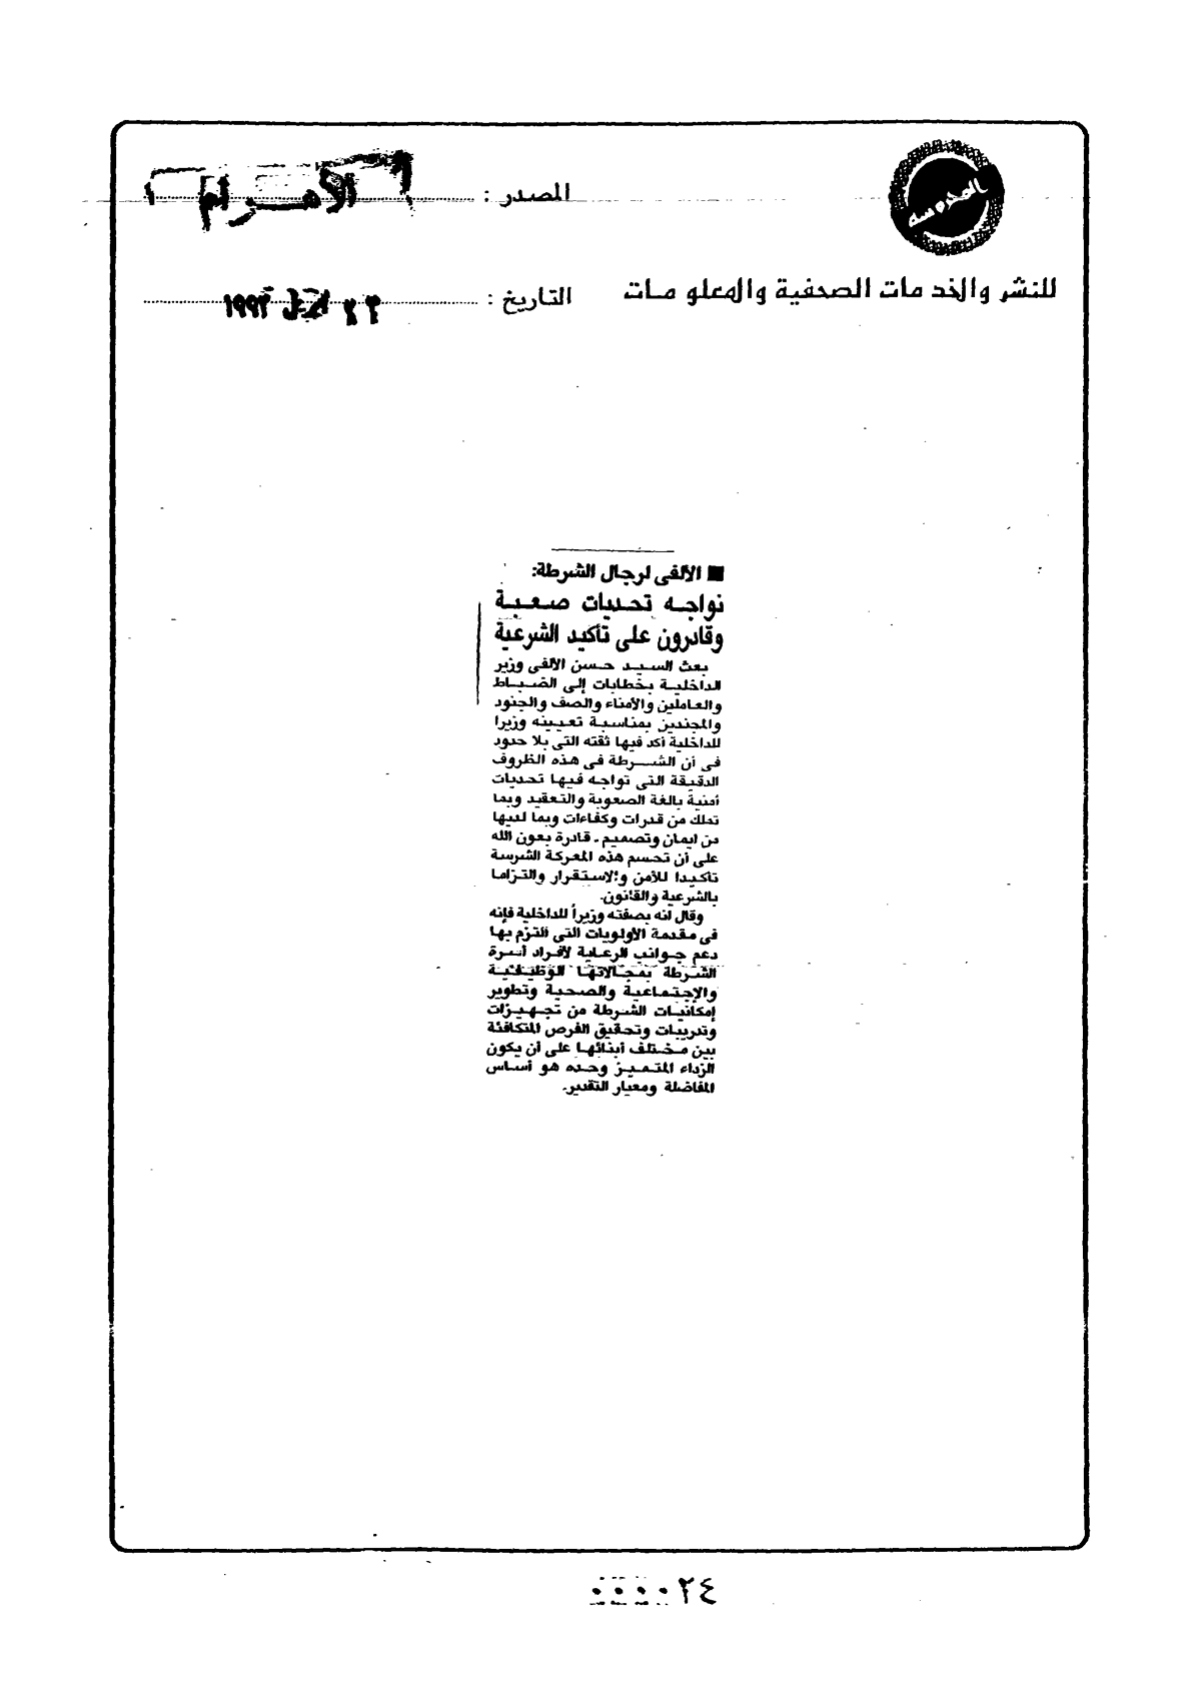 المحروسه
المصدر : الأهـرام
للنشر والخدمات الصحفية والمعلومات
التاريخ : ٢٣ ابريل ١٩٩٣
■ الألفى لرجال الشرطة:
نواجه تحديات صعبة
وقادرون على تأكيد الشرعية
بعث السيد حسن الألفى وزير
الداخلية بخطابات إلى الضباط
والعاملين والأمناء والصف والجنود
والمجندين بمناسبة تعيينه وزيرا
للداخلية أكد فيها ثقته التى بلا حدود
فى أن الشرطة فى هذه الظروف
الدقيقة التى تواجه فيها تحديات
أمنية بالغة الصعوبة والتعقيد وبما
تملك من قدرات وكفاءات وبما لديها
من ايمان وتصميم ـ قادرة بعون الله
على أن تحسم هذه المعركة الشرسة
تأكيدا للأمن والاستقرار والتزاما
بالشرعية والقانون.
وقال انه بصفته وزيراً للداخلية فإنه
فى مقدمة الأولويات التى التزم بها
دعم جوانب الرعاية لأفراد أسرة
الشرطة بمجالاتها الوظيفية
والإجتماعية والصحية وتطوير
إمكانيات الشرطة من تجهيزات
وتدريبات وتحقيق الفرص المتكافئة
بين مختلف أبنائها على أن يكون
الأداء المتميز وحده هو أساس
المفاضلة ومعيار التقدير.
٠٠٠٠٢٤